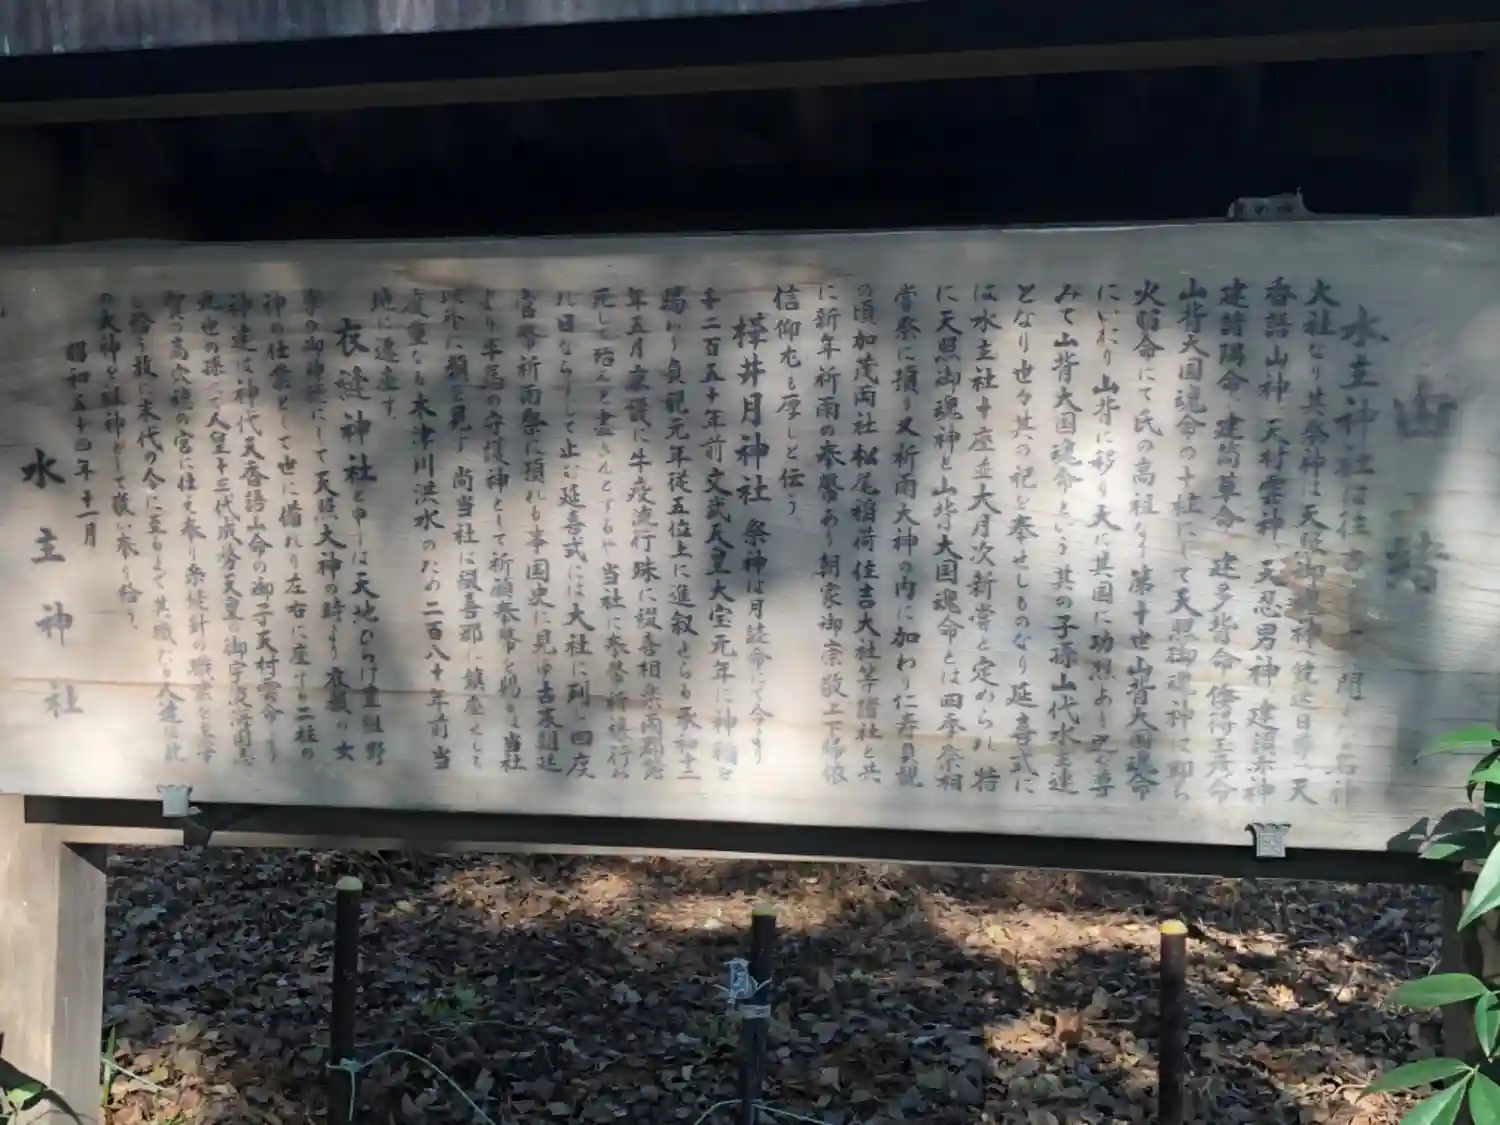 山背
水主神社は往古
大社なり其祭神は天照御魂神 饒速日尊 天
香語山神 天村雲神 天忍男神 建額赤神
建筒隅命 建筒草命 建多背命 倭得玉彦命
山背大国魂命の十柱にして天照御魂神は即ち
火明命にて氏の高祖なり第十世山背大国魂命
にいたり山背に移り大に其国に功烈あり 尊
みて山背大国魂命という其の子孫山代水主連
となり世々其の祀を奉せしものなり延喜式に
は水主社十座並大月次新嘗と定められ 特
に天照御魂神と山背大国魂命とは四奉祭相
嘗祭に預り又祈雨大神の内に加わり仁寿貞観
の頃加茂両社松尾稲荷住吉大社等諸社と共
に新年祈雨の奉幣あり朝家御崇敬上下帰依
信仰尤も厚しと伝う
樺井月神社 祭神は月読命にて今より
千二百五十年前文武天皇大宝元年に神稲を
賜わり貞観元年従五位上に進叙せらる承和十二
年五月 に牛疫流行殊に綴喜相楽両郡
元して殆んど尽きんとするや当社に奉幣祈禳行
れ日ならずして止む延喜式には大社に列し四度
官幣祈雨祭に預れる事国史に見ゆ古来朝廷
より牛馬の守護神として祈願奉幣を賜 当社
に額を見す 尚当社は綴喜郡に鎮座せしも
度重なる木津川洪水のため二百八十年前当
地に遷座す
衣縫神社と申しは天地ひらけ
の御神にして天照大神の時より 女
神の仕業として世に備れり左右に座す二柱の
神達は神代天香語山命の御子天村雲命より
世の孫 人皇十三代成務天皇の御宇
賀の高穴穂の宮に仕え奉り糸縫針の職業を
し給う故に末代の今に至るまで其職たる人達は此
の大神を祖神として敬い奉り給う
昭和五十四年十一月
水主神社